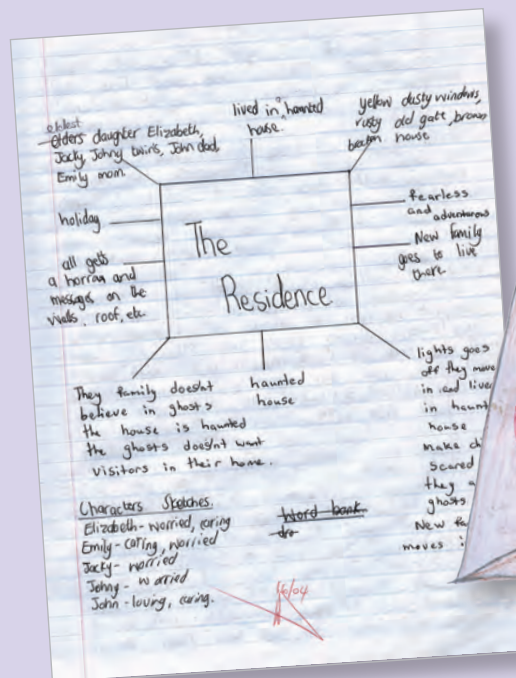 eldest
elders daughter Elizabeth,
Jacky, Johny twins, John dad,
Emily mom.
lived in haunted
house.
yellow dusty windows,
rusty old gate, brown
house
holiday
fearless
and adventurous
New family
goes to live
there
all gets
a horran and
messages on the
walls, roof, etc.
The
Residence
They family doesn't
believe in ghosts
the house is haunted
the ghosts does'nt want
visitors in their home.
haunted
house
lights goes
off they move
in and live
in haunt
house
make
scared
they a
ghosts
New fa
moves
Characters Sketches.
Elizabeth - worried, caring
Emily - caring, worried
Jacky - worried
Johny - worried
John - loving, caring.
Word bank